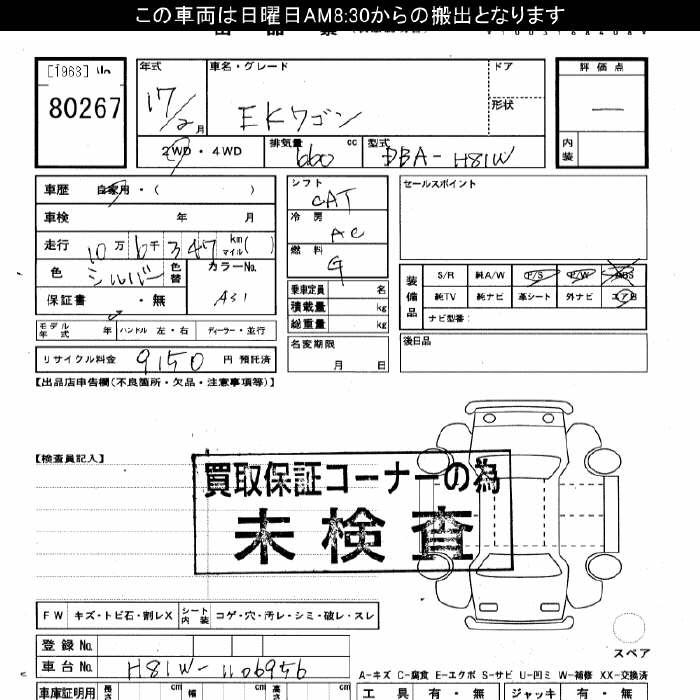 この車両は日曜日AM8:30からの搬出となります
[1963] 山
80267
年式 車名・グレード ドア 評価点
17/2月 EKワゴン 形状 —
2WD・4WD 排気量 660 cc 型式 DBA-H81W 内装
車歴 自家用・( )
車検 年 月
走行 10万6千347 km マイル( )
色 シルバー 色替 カラーNo. A31
保証書 ・無
モデル年式 年 ハンドル 左・右 ディーラー・並行
リサイクル料金 9150 円 預託済
シフト CAT
冷房 AC
燃料 G
乗車定員 名
積載量 kg
総重量 kg
名変期限 月 日
セールスポイント
装備品 S/R 純A/W P/S P/W ABS
純TV 純ナビ 革シート 外ナビ エアB
ナビ型番:
後日品
【出品店申告欄(不良箇所・欠品・注意事項等)】
【検査員記入】
買取保証コーナーの為
未検査
FW キズ・トビ石・割レX シート内装 コゲ・穴・汚レ・シミ・破レ・スレ
スペア
登録No.
車台No. H81W-1106956
A-キズ C-腐食 E-エクボ S-サビ U-凹ミ W-補修 XX-交換済
車庫証明用 長さ cm 幅 cm 高さ cm 工具 有・無 ジャッキ 有・無